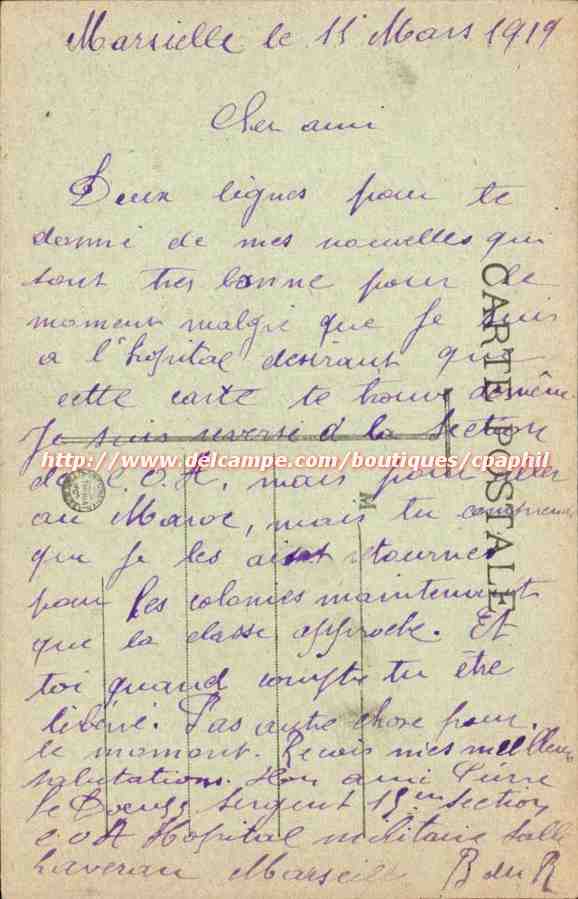 Marseille le 11 Mars 1919
Cher ami
Deux lignes pour te
donné de mes nouvelles qui
sont tres bonne pour le
moment malgré que Je suis
a l'hôpital desirant que
cette carte te trouve de même.
Je suis versé à la Section
de C.O.A, mais pour aller
au Maroc, mais tu comprends
que Je les ait retourner
pour les colonies maintenant
que la classe approche. Et
toi quand compte tu être
libéré. Pas autre chose pour
le moment. Recois mes meilleurs
salutations. Ton ami Pierre
le Sergent 15em Section
C.O.A Hopital militaire Salle
Laveran Marseille B du R
CARTE POSTALE
M
http://www.delcampe.com/boutiques/cpaphil